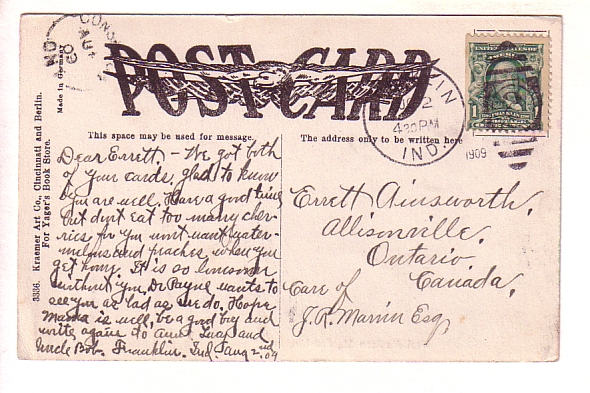 POST CARD
Made in Germany
3336. Kraemer Art Co., Cincinnati and Berlin.
For Yager's Book Store.
This space may be used for message.
The address only to be written here
Dear Errett. - We got both
of your cards, glad to know
you are well. Have a good time
but don't eat too many cher-
ries for you wont want water-
melons and peaches when you
get home. It is so lonesome
without you. Dr Payne wants to
see you as bad as we do. Hope
Mama is well, be a good boy and
write again to Aunt Lucy and
Uncle Bob. Franklin. Ind. Aug 2nd 09
Errett Ainsworth,
Allisonville,
Ontario,
Canada,
Care of
J. R. Esq,
2
430PM
IND.
1909